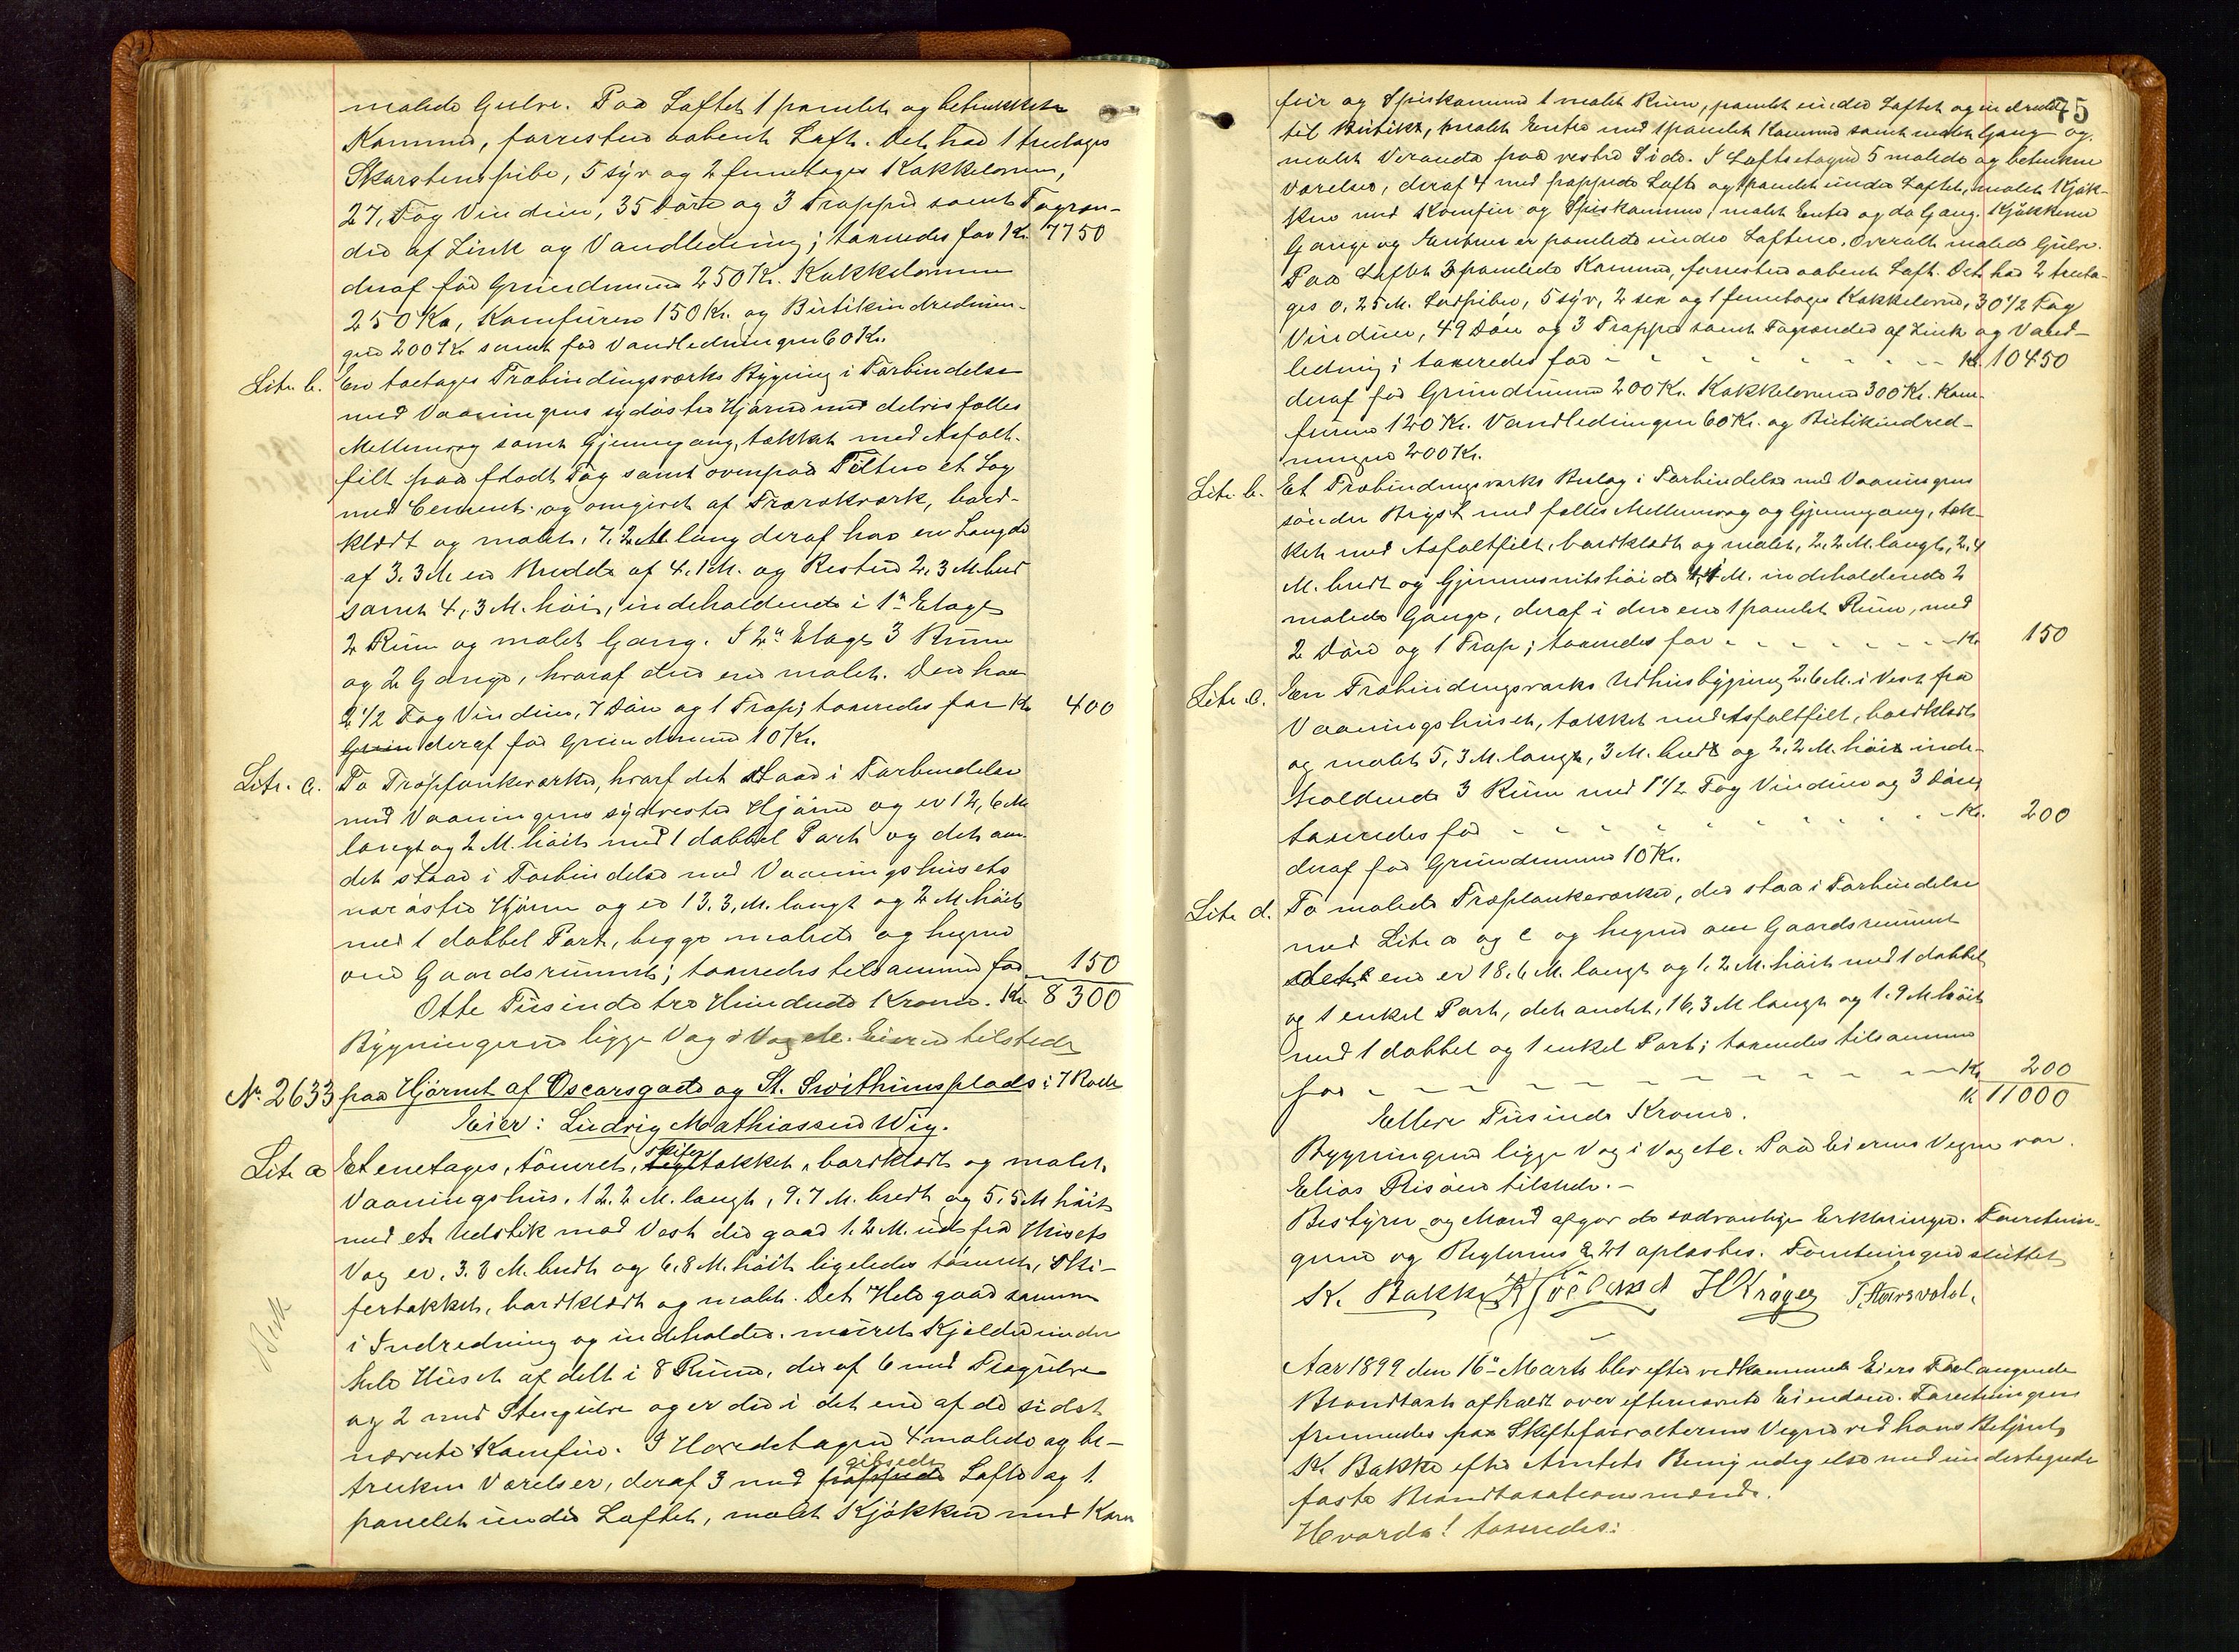 malede Gulve. Paa Loftet 1 panelet og betrukket
Kammer, forresten aabent Loft. Det har 1 treetages
Skorstenspibe, 5 syv og 2 femetages Kakkelovne,
27, Fag Vinduer, 35 Døre og 3 Trapper samt Tagren-
der af Zink og Vandledning; taxeredes for Kr. 7750
deraf for Grundmuren 250 Kr. Kakkelovnene
250 Kr, Komfuren 150 Kr. og Butikindrednin-
gen 200 Kr samt for Vandledningen 60 Kr.
Litr. b. En toetages Træbindingsværks Bygning i Forbindelse
med Vaaningens sydøstre Hjørne med delvis fælles
Mellemvæg samt Gjennemgang, tækket med Asfalt-
filt paa fladt Tag samt ovenpaa Filten et Lag
med Cement og omgivet af Trærækværk, bord-
klædt og malet, 7,2 M. lang deraf har en Længde
af 3,3 M. en Bredde af 4,1 M. og Resten 2,3 M. bred
samt 4,3 M. høi, indeholdende i 1ste Etage
2 Rum og malet Gang. I 2den Etage 3 Rum
og 2 Gange, hvoraf den ene malet. Den har
2 1/2 Fag Vinduer, 7 Døre og 1 Trap; taxeredes for Kr 400
Grun deraf for Grundmuren 10 Kr.
Litr. c. To Træplankeværker, hvoraf det staar i Forbindelse
med Vaaningens sydvestre Hjørne og er 12,6 M
langt og 2 M. høit med 1 dobbel Port og det an-
det staar i Forbindelse med Vaaningshusets
norøstre Hjørne og er 13,3 M. langt og 2 M. høit
med 1 dobbel Port, begge malede og hegner
om Gaardsrummet; taxeredes tilsammen for 150
Otte Tusinde tre Hundrede Kroner. Kr 8300
Bygningerne ligge Væg i Væg etc. Eieren tilstede
No 2633 paa Hjørnet af Oscarsgade og St. Swithunsplads i 7 Rode
Eier: Ludvig Mathiassen Wig.
Litr a Et enetages, tømret, tegl skifertækket, bordklædt og malet
Vaaningshus, 12.2 M. langt, 9.7 M. bredt og 5,5 M høit
med et Udstik mod Vest der gaar 1.2 M. ud fra Husets
Væg er 3.8 M. bredt og 6.8 M. høit ligeledes tømret, ski-
fertækket, bordklædt og malet. Det Hele gaar sammen
i Indredning og indeholder, muret Kjelder under
hele Huset af delt i 8 Rum, der af 6 med Trægulve
og 2 med Stengulve og er der i det ene af de sidst
nævnte Komfur. I Hovedetagen 4 malede og be-
trukne Værelser, deraf 3 med pappede gibsede Lofte og 1
panelet under Loftet, malet Kjøkken med Kom
75
fuir og Spiskammer 1 malet Rum, panelet under Loftet og indredet
til Butik, malet Entre med 1 panelet Kammer samt malet Gang og
malet Veranda paa vestre Side. I Loftsetagen 5 malede og betrukne
Værelser, deraf 4 med pappede Lofte og 1 panelet under Loftet, malet Kjøk-
ken med Komfur og Spiskammer, malet Entre og do Gang. Kjøkkener
Gange og Entreer er panelede under Loftene. Overalt malede Gulve.
Paa Loftet 3 panelede Kammer, forresten aabent Loft. Det har 2 treeta-
ges 0,25 M. Lodpiber, 5 syv, 2 sex og 1 femetages Kakkelovne, 30 1/2 Fag
Vinduer, 49 Døre og 3 Trapper samt Tagrender af Zink og Vand-
ledning; taxeredes for Kr. 10450
deraf for Grundmuren 200 Kr. Kakkelovnene 300 Kr. Kom-
furene 120 Kr. Vandledningen 60 Kr. og Butikindred-
ningen 200 Kr.
Litr. b. Et Træbindingsværks Beslag i Forbindelse med Vaaningens
søndre Bryst med fælles Mellemvæg og Gjennemgang, tæk-
ket med Asfaltfilt, bordklædt og malet, 2,2 M. langt, 2,4
M. bredt og Gjennemsnitshøide 4,1 M. indeholdende 2
malede Gange, deraf i den ene 1 panelet Rum, med
2 Døre og 1 Trap; taxeredes for Kr. 150
Litr. c. En Træbindingsværks Udhusbygning 2.6 M. i Vest fra
Vaaningshuset, tækket med Asfaltfilt, bordklædt
og malet 5,3 M. langt, 3 M. bredt og 2,2 M. høit inde-
holdende 3 Rum med 1 1/2 Fag Vinduer og 3 Døre
taxeredes for Kr. 200
deraf for Grundmuren 10 Kr.
Litr d. To malede Træplankeværker, der staa i Forbindelse
med Litr a og c og hegner om Gaardsrummet
det ene er 18.6 M. langt og 1.2 M. høit med 1 dobbel
og 1 enkel Port, det andet, 16,3 M langt og 1.9 M høit
med 1 dobbel og 1 enkel Port; taxeredes tilsammen
for Kr 200
Kr 11000
Elleve Tusinde Kroner.
Bygningerne ligge Væg i Væg etc. Paa Eierens Vegne var
Elias Risøen tilstede. -
Bestyrer og Mænd afgav de sædvanlige Erklæringer. Forretnin-
gerne og Reglernes § 21 oplæstes. Forretningen sluttet
K. Bakke H Kröger T. Haarvoldt.
Aar 1899 den 16de Marts blev efter vedkommende Eiers Forlangende
Brandtaxt afholdt over efternævnte Eiendom. Forretningen
fremmedes paa Skifteforvalterens Vegne ved hans Betjent
K. Bakke efter Amtets Bemyndigelse med undertegnede
faste Brandtaxationsmænd.
Hvorda! taxeredes: